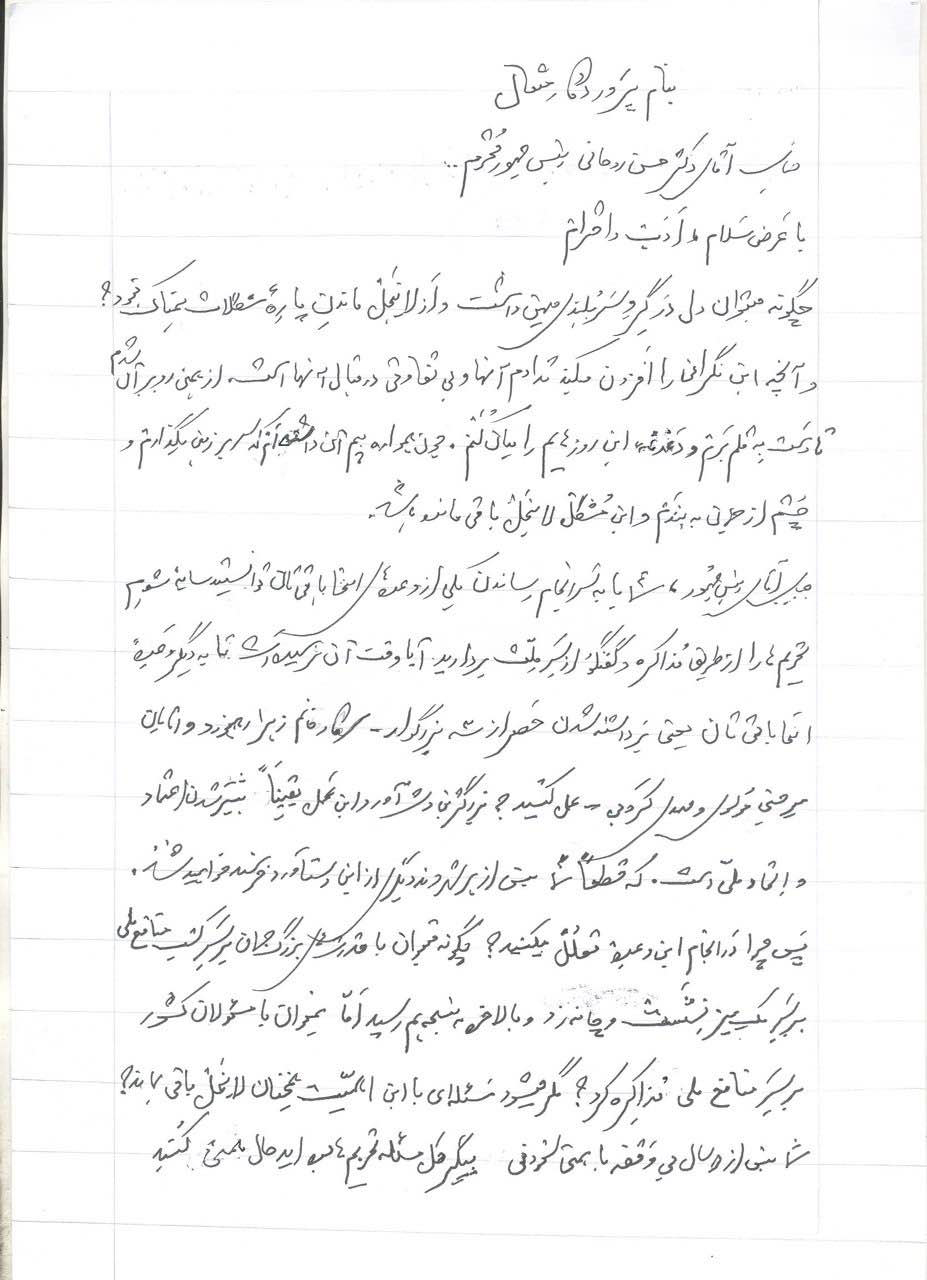 بنام پروردگار متعال
جناب آقای دکتر حسن روحانی رئیس جمهور محترم ..
با عرض سلام و ادب و احترام
چگونه میتوان دل در گرو سربلندی میهن داشت و از لاینحل ماندن پاره مشکلات بیمناک نبود؟
و آنچه این نگرانی را افزون میکند تداوم آنها و بی تفاوتی در قبال آنها است. از همین رو بر آن شدم
تا دست به قلم برم و دغدغه این روزهایم را بیان کنم. چون همواره بیم آن داشته ام که سر بر زمین بگذارم و
چشم از جهان به بندم و این مشکل لاینحل باقی مانده باشد.
جناب آقای رئیس جمهور، شما با به سرانجام رساندن یکی از وعده های انتخاباتی تان توانستید سایه شوم
تحریم ها را از طریق مذاکره و گفتگو از سر ملت بردارید. آیا وقت آن نرسیده است تا به دیگر وعده
انتخاباتی تان یعنی برداشته شدن حصر از سه بزرگوار - سرکار خانم زهرا رهنورد و آقایان
میرحسین موسوی و مهدی کروبی - عمل کنید؟ بزرگترین دستآورد این عمل یقیناً بیشتر شدن اعتماد
و اتحاد ملی است. که قطعاً شما بیش از هر شهروند دیگری از این دستآورد خرسند خواهید شد.
پس چرا در انجام این وعده تعلل میکنید؟ چگونه میتوان با قدرتهای بزرگ جهان بر سر کسب منافع ملی
بر سر یک میز نشست و چانه زد و بالاخره به نتیجه هم رسید اما نمیتوان با مسئولان کشور
بر سر منافع ملی مذاکره کرد؟ مگر میشود مسئله ای با این اهمیت همچنان لاینحل باقی بماند؟
شما بیش از دو سال بی وقفه با همتی پیگیر حل مسئله تحریم ها بوده اید حال همتی کنید